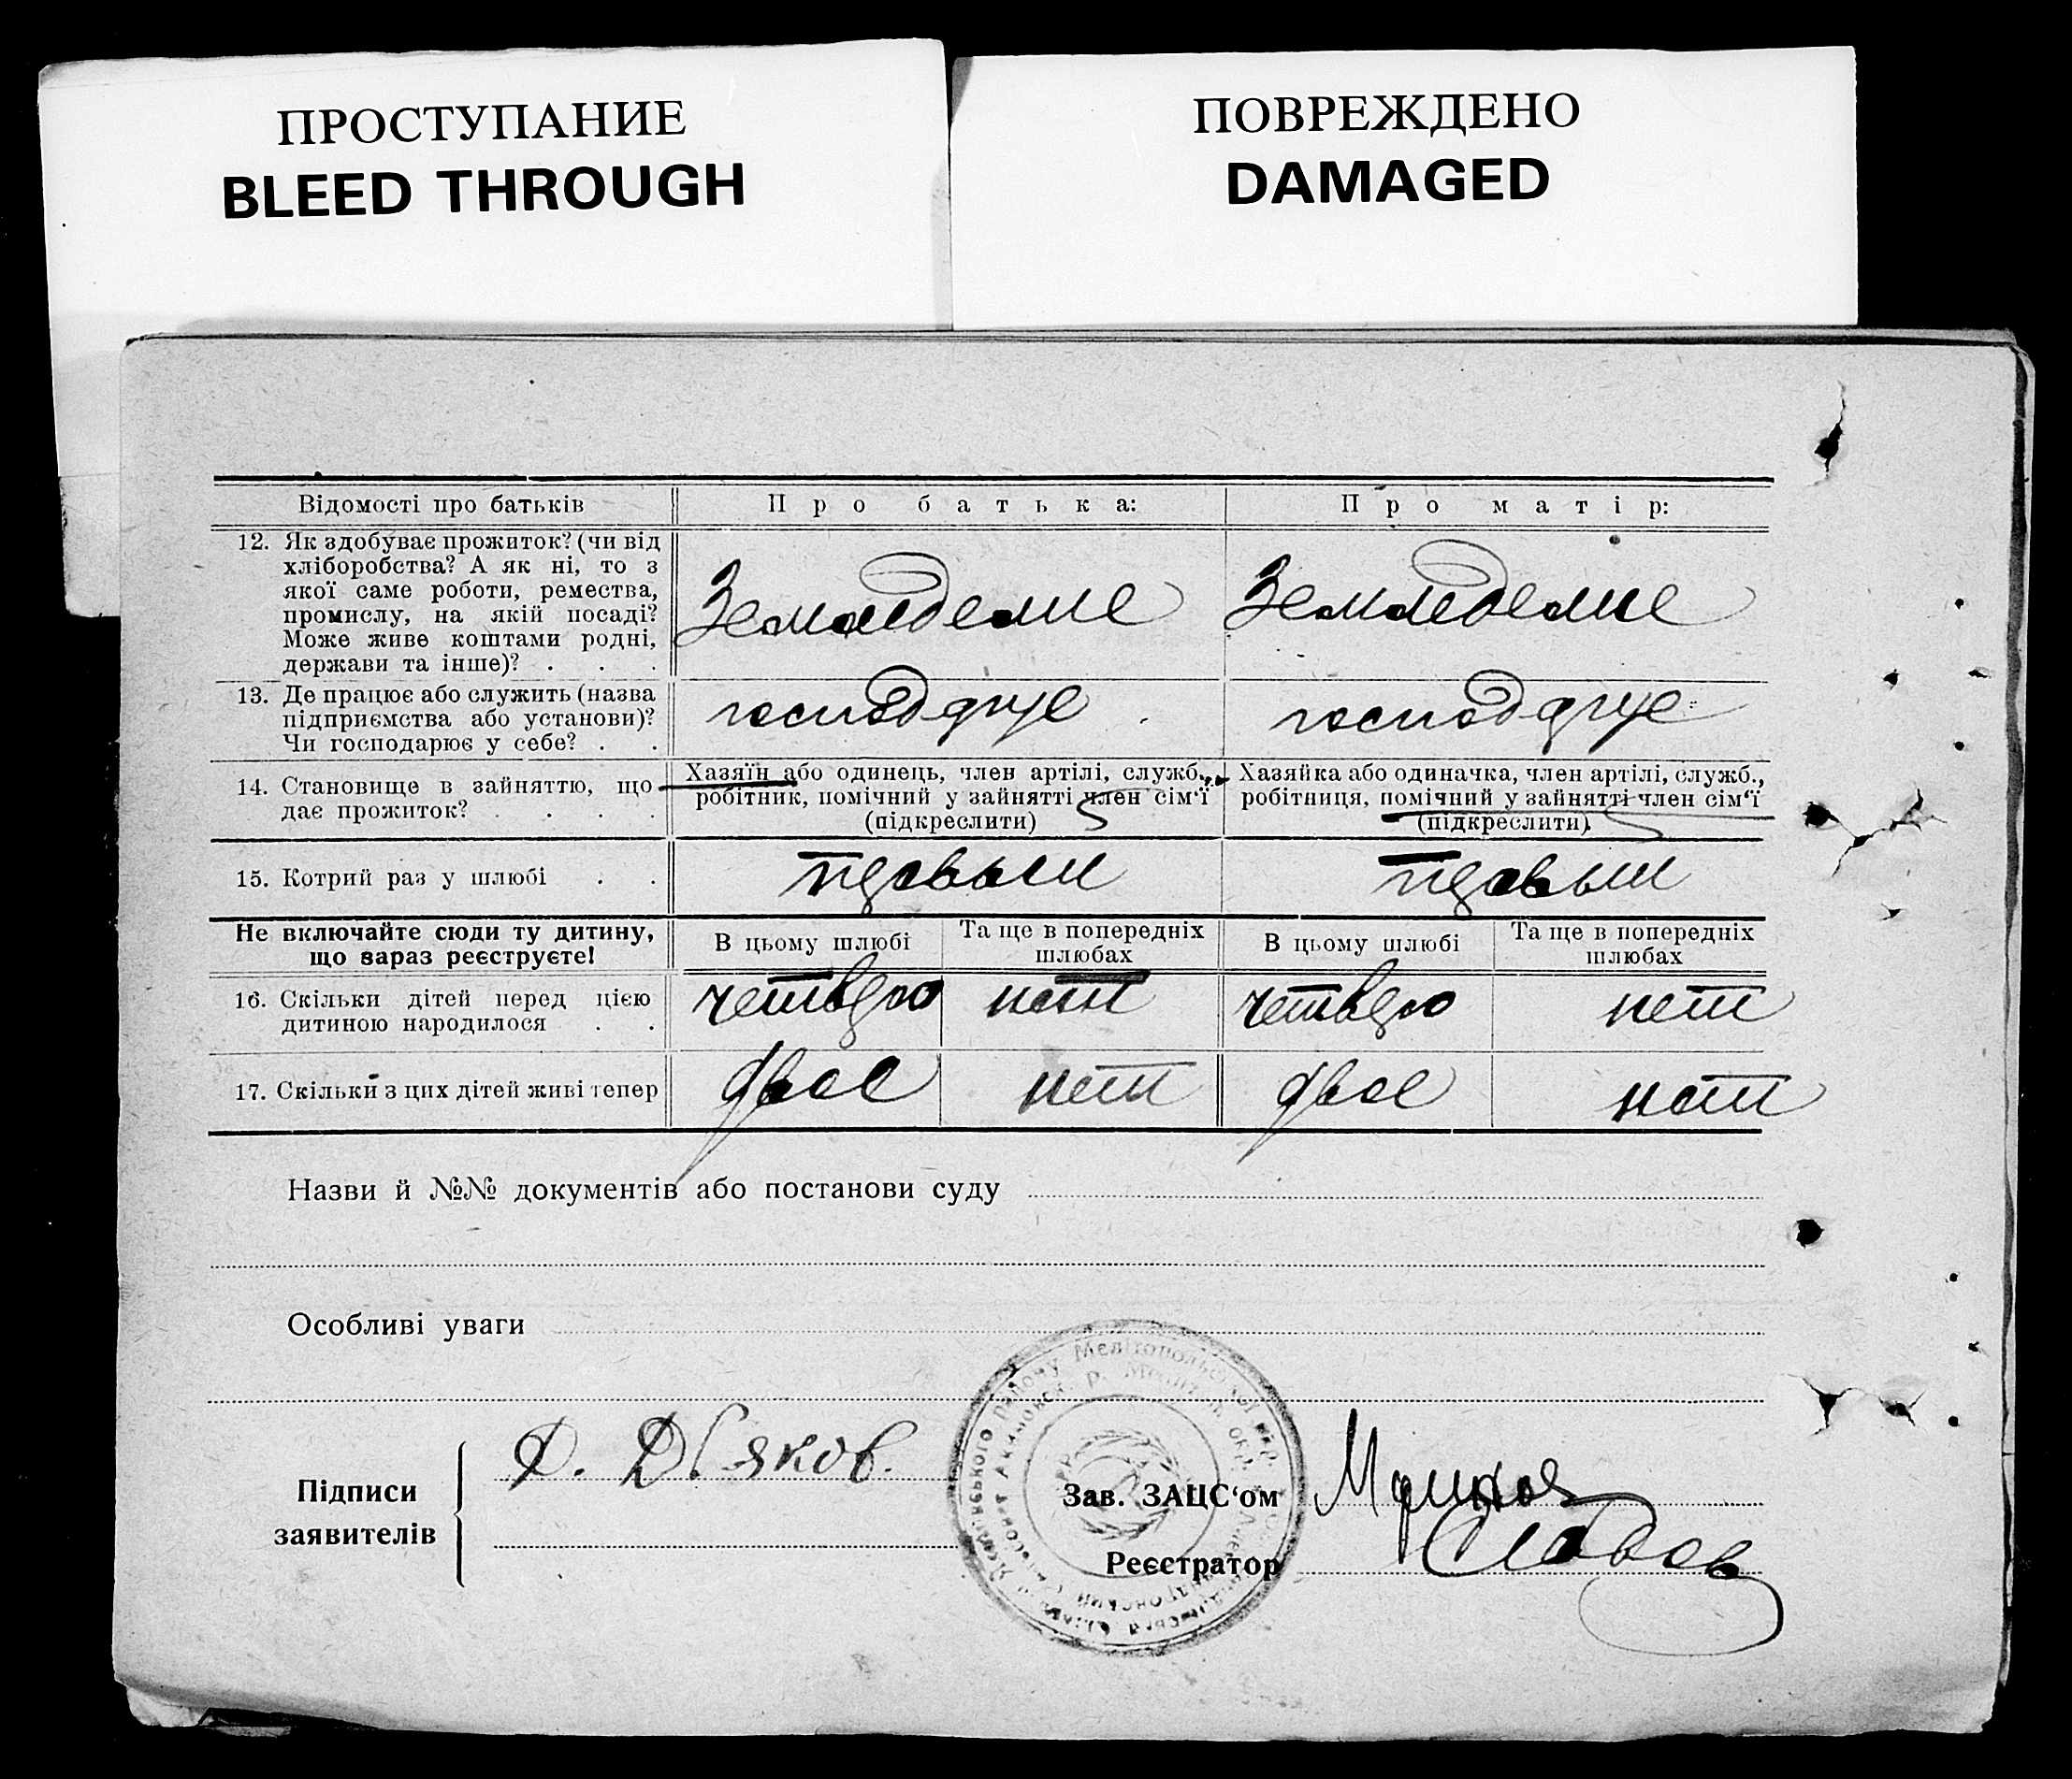 ПРОСТУПАНИЕ
BLEED THROUGH
ПОВРЕЖДЕНО
DAMAGED
Відомості про батьків
Про батька:
Про матір:
12. Як здобуває прожиток? (чи від
хліборобства? А як ні, то з
якої саме роботи, ремества,
промислу, на якій посаді?
Може живе коштами родні,
держави та інше)? . . .
Земледелие
Земледелие
13. Де працює або служить (назва
підприємства або установи)?
Чи господарює у себе? . .
14. Становище в зайняттю, що
дає прожиток? . . . .
Хазяїн або одинець, член артілі, служб.,
робітник, помічний у зайнятті член сім'ї
(підкреслити)
Хазяйка або одиначка, член артілі, служб.,
робітниця, помічний у зайнятті член сім'ї
(підкреслити)
15. Котрий раз у шлюбі . .
Не включайте сюди ту дитину,
що зараз реєструєте!
В цьому шлюбі
Та ще в попередніх
шлюбах
В цьому шлюбі
Та ще в попередніх
шлюбах
16. Скільки дітей перед цією
дитиною народилося . .
четверо
нет
четверо
нет
17. Скільки з цих дітей живі тепер
двое
нет
двое
нет
Назви й №№ документів або постанови суду
Особливі уваги
Підписи
заявителів
Д. Дьяков.
Зав. ЗАЦС'ом
Реєстратор